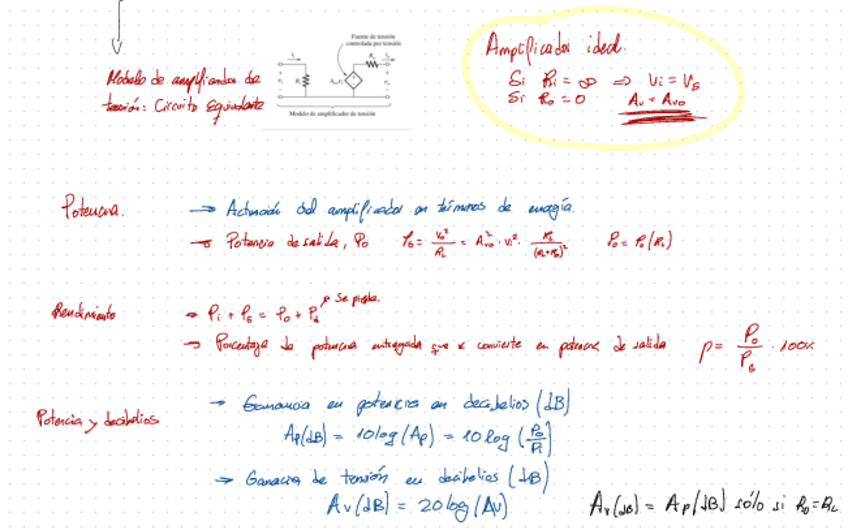 Fuente de tensión
controlada por tensión
Modelo de amplificador de tensión
Modelo de amplificador de
tensión: Circuito Equivalente
Amplificador ideal.
Si Ri = ∞ ⇒ Vi = Vs
Si Ro = 0 Av = Avo
Potencia.
→ Actuación del amplificador en términos de energía.
→ Potencia de salida, Po Po = Vo²/RL = Avo² · Vi² · RL/(RL+Ro)² Po = Po(RL)
Rendimiento
→ Pi + Ps = Po + Pd ↗ Se pierde.
→ Porcentaje de potencia entregada que se convierte en potencia de salida ρ = Po/Ps · 100%
Potencia y decibelios
→ Ganancia en potencia en decibelios (dB)
Ap(dB) = 10log(Ap) = 10log(Po/Pi)
→ Ganacia de tensión en decibelios (dB)
Av(dB) = 20log(Av)
Av(dB) = Ap(dB) sólo si Ro=RL